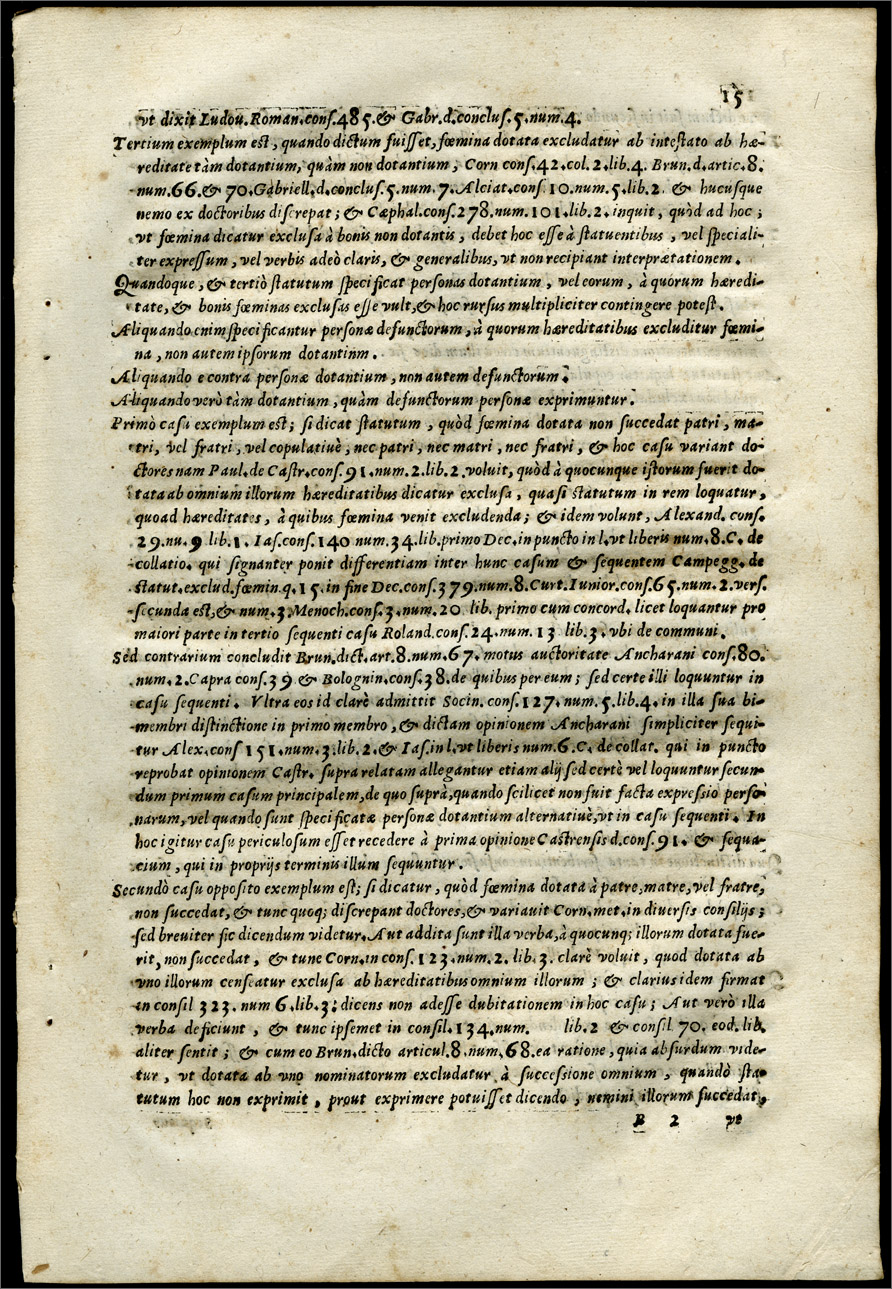 15
vt dixit Ludou. Roman. cons. 485. & Gabr. d. conclus. 5. num. 4.
Tertium exemplum est, quando dictum fuisset, fœmina dotata excludatur ab intestato ab hæ-
reditate tàm dotantium, quàm non dotantium, Corn cons. 42. col. 2. lib. 4. Brun. d. artic. 8.
num. 66. & 70. Gabriell. d. conclus. 5. num. 7. Alciat. cons. 10. num. 5. lib. 2. & hucusque
nemo ex doctoribus discrepat; & Cæphal. cons. 278. num. 101. lib. 2. inquit, quòd ad hoc;
vt fœmina dicatur exclusa à bonis non dotantis, debet hoc esse à statuentibus, vel speciali-
ter expressum, vel verbis adeò claris, & generalibus, vt non recipiant interprætationem.
Quandoque, & tertiò statutum specificat personas dotantium, vel eorum, à quorum hæredi-
tate, & bonis fœminas exclusas esse vult, & hoc rursus multipliciter contingere potest.
Aliquando enim specificantur personæ defunctorum, à quorum hæreditatibus excluditur fœmi-
na, non autem ipsorum dotantinm.
Aliquando e contra personæ dotantium, non autem defunctorum.
Aliquando verò tàm dotantium, quàm defunctorum personæ exprimuntur.
Primò casu exemplum est; si dicat statutum, quòd fœmina dotata non succedat patri, ma-
tri, vel fratri, vel copulatiuè, nec patri, nec matri, nec fratri, & hoc casu variant do-
ctores nam Paul. de Castr. cons. 91. num. 2. lib. 2. voluit, quòd à quocunque istorum fuerit do-
tata ab omnium illorum hæreditatibus dicatur exclusa, quasi statutum in rem loquatur,
quoad hæreditates, à quibus fœmina venit excludenda; & idem volunt, Alexand. cons.
29. nu. 9 lib. 1. Ias. cons. 140 num. 34. lib. primo Dec. in puncto in l. vt liberis num. 8. C. de
collatio. qui signanter ponit differentiam inter hunc casum & sequentem Campegg. de
statut. exclud. fœmin. q. 15. in fine Dec. cons. 379. num. 8. Curt. Iunior. cons. 65. num. 2. vers.
secunda est, & num. 3. Menoch. cons. 3. num. 20 lib. primo cum concord. licet loquantur pro
maiori parte in tertio sequenti casu Roland. cons. 24. num. 13 lib. 3. vbi de communi.
Sed contrarium concludit Brun. dict. art. 8. num. 67. motus auctoritate Ancharani cons. 80.
num. 2. Capra cons. 39 & Bolognin. cons. 38. de quibus per eum; sed certe illi loquuntur in
casu sequenti. Vltra eos id clarè admittit Socin. cons. 127. num. 5. lib. 4. in illa sua bi-
membri distinctione in primo membro, & dictam opinionem Ancharani simpliciter sequi-
tur Alex. cons 151. num. 3. lib. 2. & Ias. in l. vt liberis num. 6. C. de collat. qui in puncto
reprobat opinionem Castr. supra relatam allegantur etiam alij sed certè vel loquuntur secun-
dum primum casum principalem, de quo suprà, quando scilicet non fuit facta expressio perso-
narum, vel quando sunt specificatæ personæ dotantium alternatiuè, vt in casu sequenti. In
hoc igitur casu periculosum esset recedere à prima opinione Castrensis d. cons. 91. & sequa-
cium, qui in proprijs terminis illum sequuntur.
Secundò casu opposito exemplum est; si dicatur, quòd fœmina dotata à patre, matre, vel fratre,
non succedat, & tunc quoq; discrepant doctores, & variauit Corn. met. in diuersis consilijs;
sed breuiter sic dicendum videtur. Aut addita sunt illa verba, à quocunq; illorum dotata fue-
rit, non succedat, & tunc Corn. in cons. 123. num. 2. lib. 3. clarè voluit, quod dotata ab
vno illorum censeatur exclusa ab hæreditatibus omnium illorum; & clarius idem firmat
in consil 323. num 6. lib. 3; dicens non adesse dubitationem in hoc casu; Aut verò illa
verba deficiunt, & tunc ipsemet in consil. 134. num. lib. 2 & consil 70. eod. lib.
aliter sentit; & cum eo Brun. dicto articul. 8. num. 68. ea ratione, quia absurdum vide-
tur, vt dotata ab vno nominatorum excludatur à successione omnium, quandò sta-
tutum hoc non exprimit, prout exprimere potuisset dicendo, nemini illorum succedat,
B 2 vt